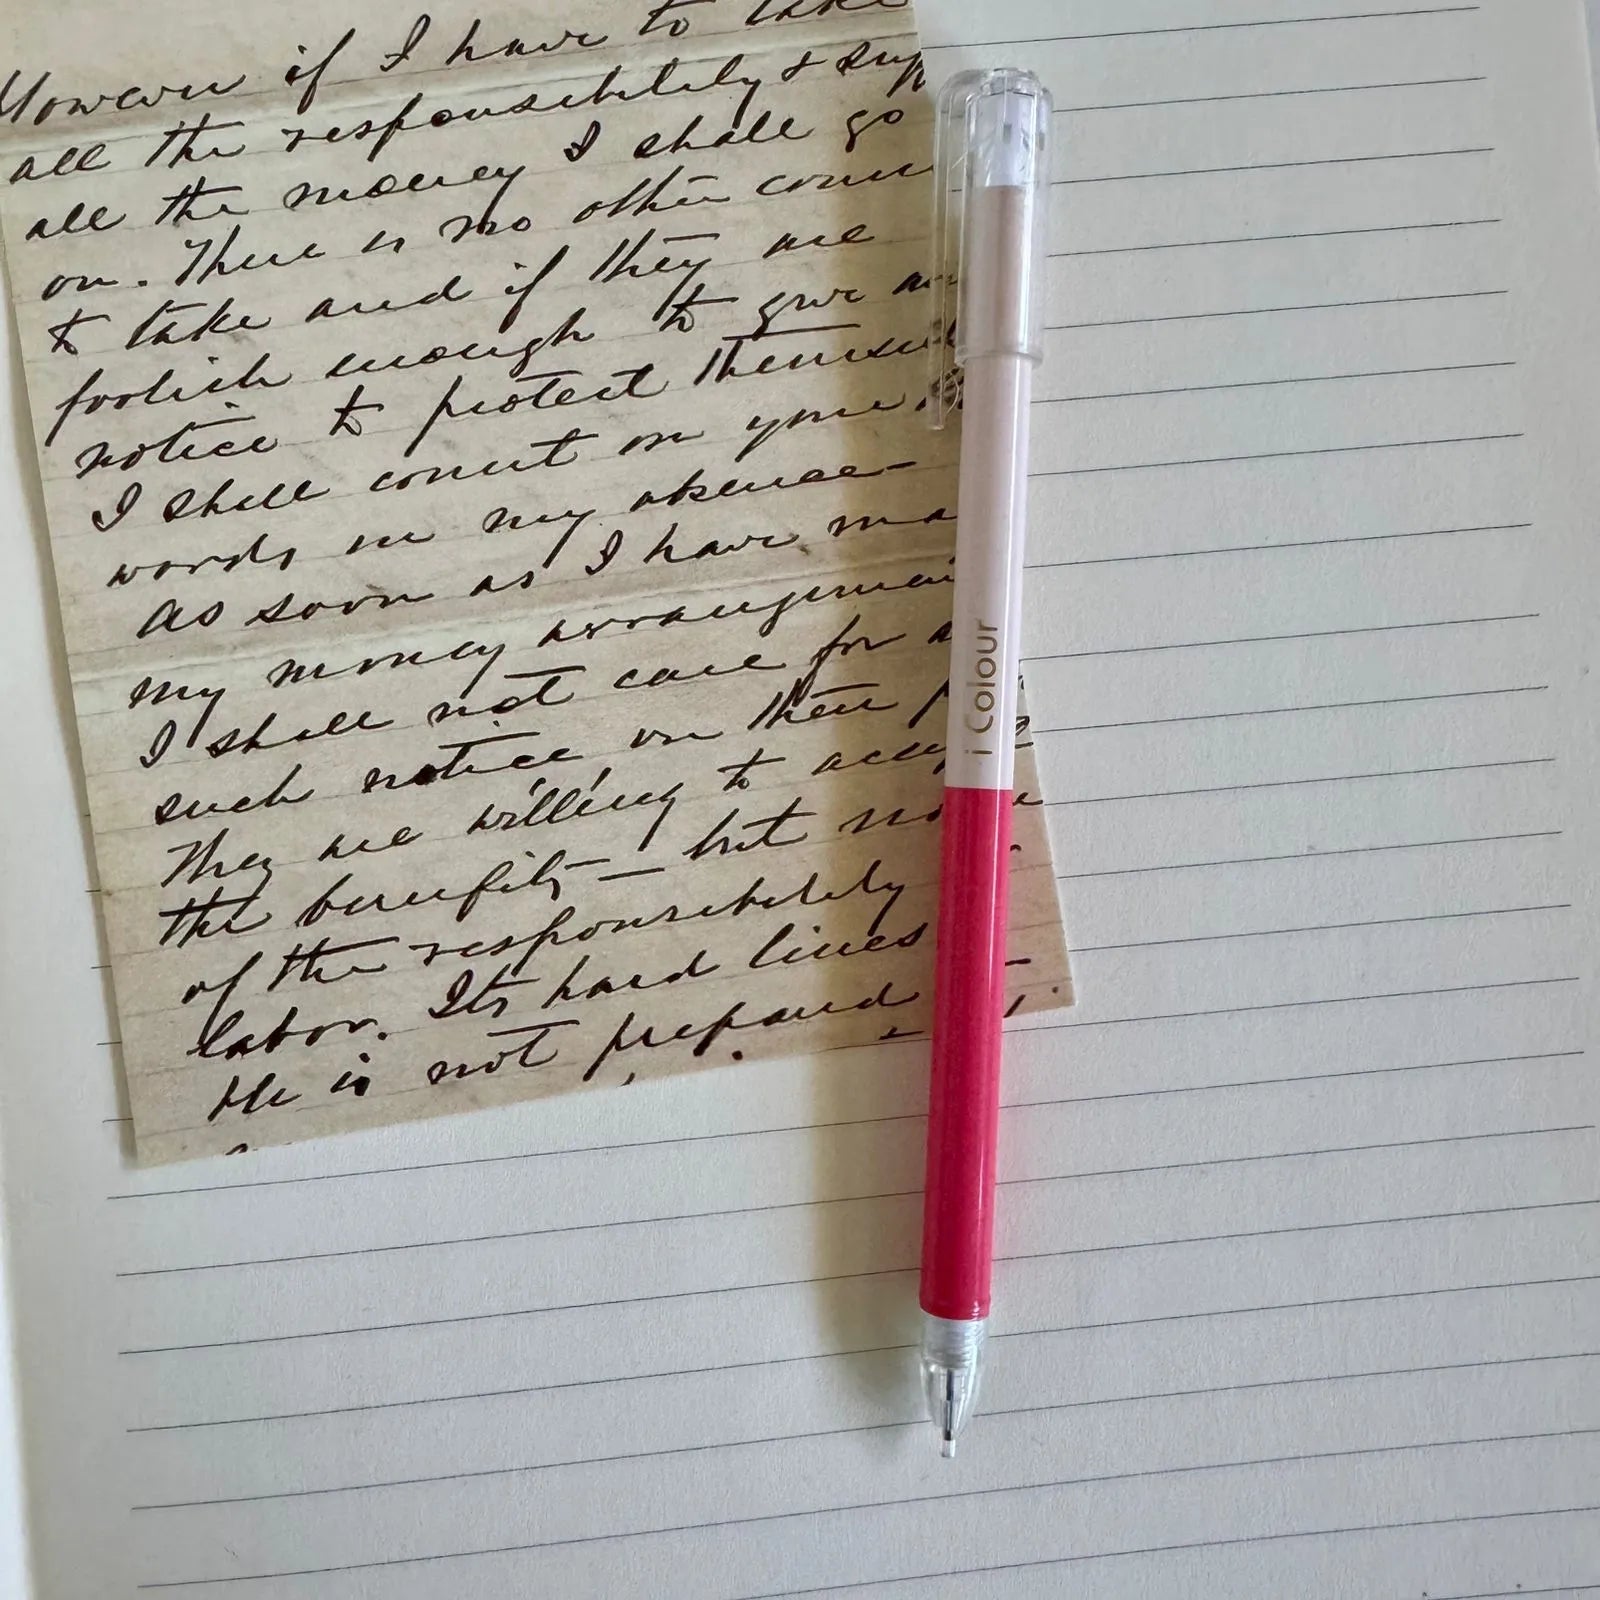 However if I have to take
all the responsibility & supp
all the money I shall go
on. There is no other cours
to take and if they are
foolish enough to give
notice to protect themsel
I shall count on your
words in my absence—
As soon as I have ma
my money arrangemen
I shall not care for a
such notice on their p
They are willing to accep
the benefits — but no
of the responsibility
labor. Its hard lines
He is not prepared
i Colour